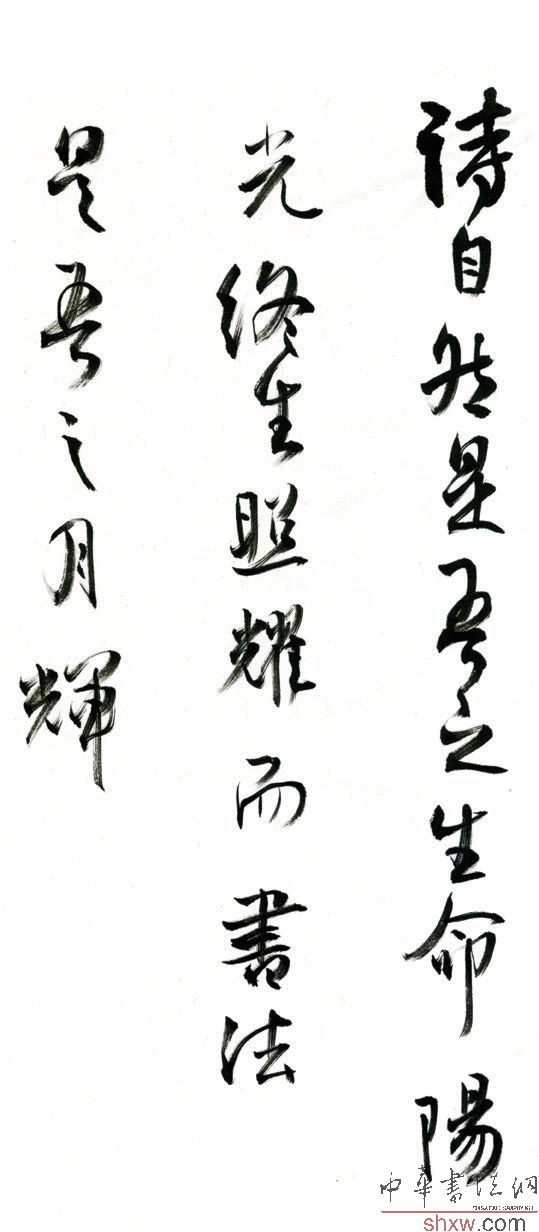 詩自然是吾之生命陽
光終生照耀而書法
是吾之月輝
中華書法網
shxw.com